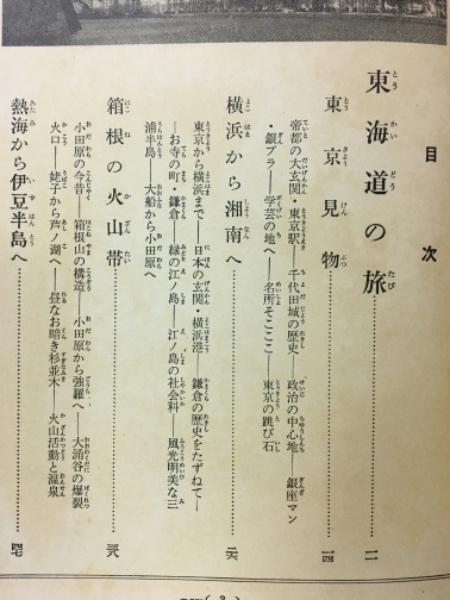 目次
東海道の旅……一一
東京見物……一四
帝都の大玄関・東京駅――千代田城の歴史――政治の中心地――銀座マン
・銀ブラ――学芸の地へ――名所そこここ――東京の跳び石
横浜から湘南へ……二六
東京から横浜まで――日本の玄関・横浜港――鎌倉の歴史をたずねて――
――お寺の町・鎌倉――緑の江ノ島――江ノ島の社会科――風光明美な三
浦半島――大船から小田原へ
箱根の火山帯……三八
小田原の今昔――箱根山の構造――小田原から強羅へ――大涌谷の爆裂
火口――姥子から芦ノ湖へ――昼なお暗き杉並木――火山活動と温泉
熱海から伊豆半島へ……四七
( 3 )